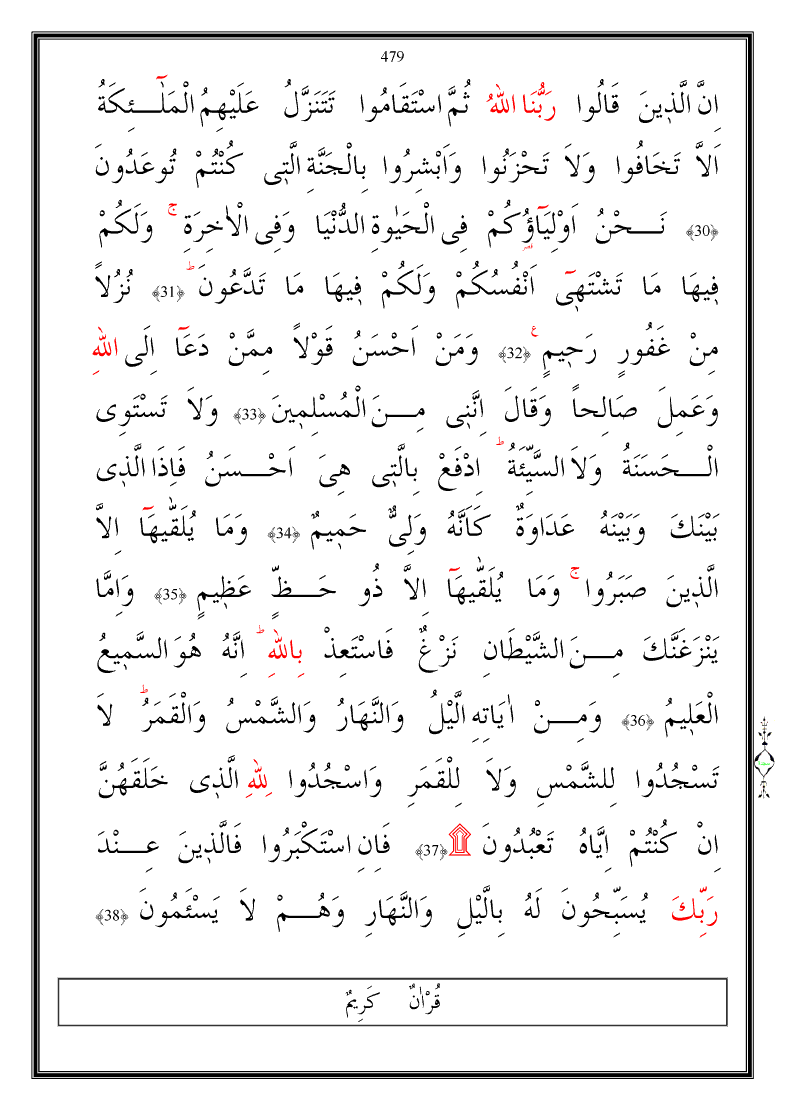 479
اِنَّ الَّذٖينَ قَالُوا رَبُّنَا اللّٰهُ ثُمَّ اسْتَقَامُوا تَتَنَزَّلُ عَلَيْهِمُ الْمَلٰٓـــئِكَةُ
اَلاَّ تَخَافُوا وَلاَ تَحْزَنُوا وَاَبْشِرُوا بِالْجَنَّةِ الَّتٖى كُنْتُمْ تُوعَدُونَ
﴿30﴾ نَـــحْنُ اَوْلِيَٓاؤُ۬كُمْ فِى الْحَيٰوةِ الدُّنْيَا وَفِى الْاٰخِرَةِ ۚ وَلَكُمْ
فٖيهَا مَا تَشْتَهٖٓى اَنْفُسُكُمْ وَلَكُمْ فٖيهَا مَا تَدَّعُونَ ؕ ﴿31﴾ نُزُلاً
مِنْ غَفُورٍ رَحٖيمٍ ࣖ ﴿32﴾ وَمَنْ اَحْسَنُ قَوْلاً مِمَّنْ دَعَٓا اِلَى اللّٰهِ
وَعَمِلَ صَالِحاً وَقَالَ اِنَّنٖى مِـــنَ الْمُسْلِمٖينَ ﴿33﴾ وَلاَ تَسْتَوِى
الْـــحَسَنَةُ وَلاَ السَّيِّئَةُ ؕ اِدْفَعْ بِالَّتٖى هِىَ اَحْـــسَنُ فَاِذَا الَّذٖى
بَيْنَكَ وَبَيْنَهُ عَدَاوَةٌ كَاَنَّهُ وَلِىٌّ حَمٖيمٌ ﴿34﴾ وَمَا يُلَقّٰيهَٓا اِلاَّ
الَّذٖينَ صَبَرُوا ۚ وَمَا يُلَقّٰيهَٓا اِلاَّ ذُو حَـــظٍّ عَظٖيمٍ ﴿35﴾ وَاِمَّا
يَنْزَغَنَّكَ مِـــنَ الشَّيْطَانِ نَزْغٌ فَاسْتَعِذْ بِاللّٰهِ ؕ اِنَّهُ هُوَ السَّمٖيعُ
الْعَلٖيمُ ﴿36﴾ وَمِـــنْ اٰيَاتِهِ الَّيْلُ وَالنَّهَارُ وَالشَّمْسُ وَالْقَمَرُ ؕ لاَ
تَسْجُدُوا لِلشَّمْسِ وَلاَ لِلْقَمَرِ وَاسْجُدُوا لِلّٰهِ الَّذٖى خَلَقَهُنَّ
اِنْ كُنْتُمْ اِيَّاهُ تَعْبُدُونَ ۩ ﴿37﴾ فَاِنِ اسْتَكْبَرُوا فَالَّذٖينَ عِـــنْدَ
رَبِّكَ يُسَبِّحُونَ لَهُ بِالَّيْلِ وَالنَّهَارِ وَهُـــمْ لاَ يَسْئَمُونَ ﴿38﴾
قُرْاٰنٌ كَرٖيمٌ